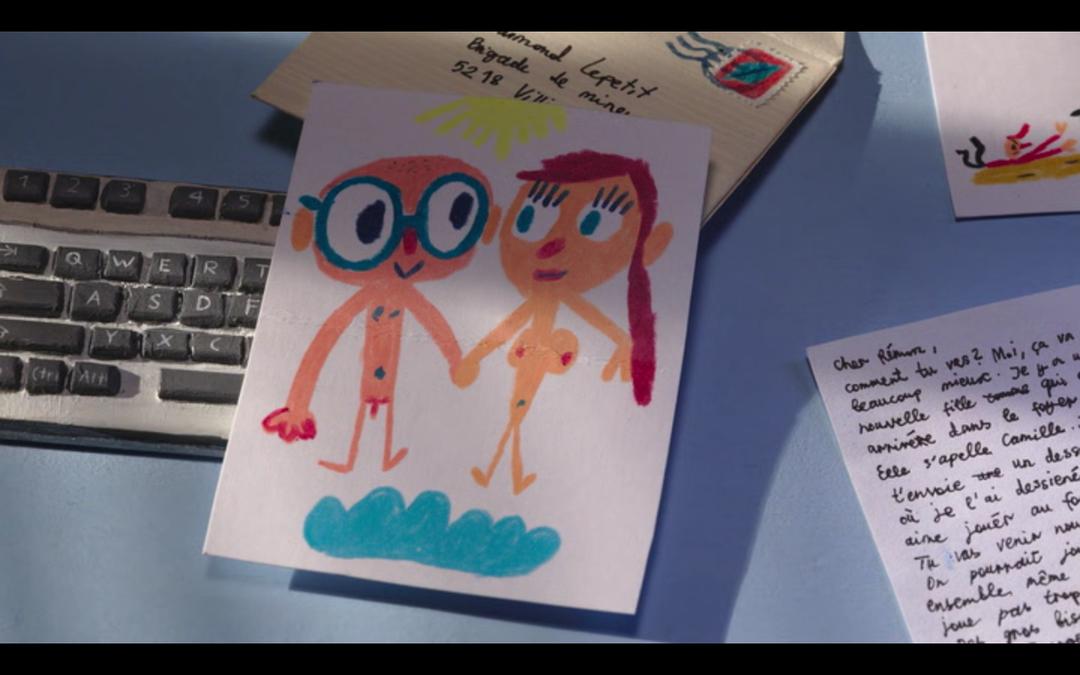 Brigade de
5218
1 2 3 4 5
Q W E R T
A S D F
Y X C
Ctrl Alt
cher Rémon,
comment tu vas? Moi, ça va
beaucoup mieux. Je y a u
nouvelle fille qui
arrivée dans le foyer
Elle s'apelle Camille.
t'envoie un dess
où je l'ai dessiené
aime jouér au fo
Tu vas venir nou
On pourrait jou
ensemble, même
joue pas trop
gros bis